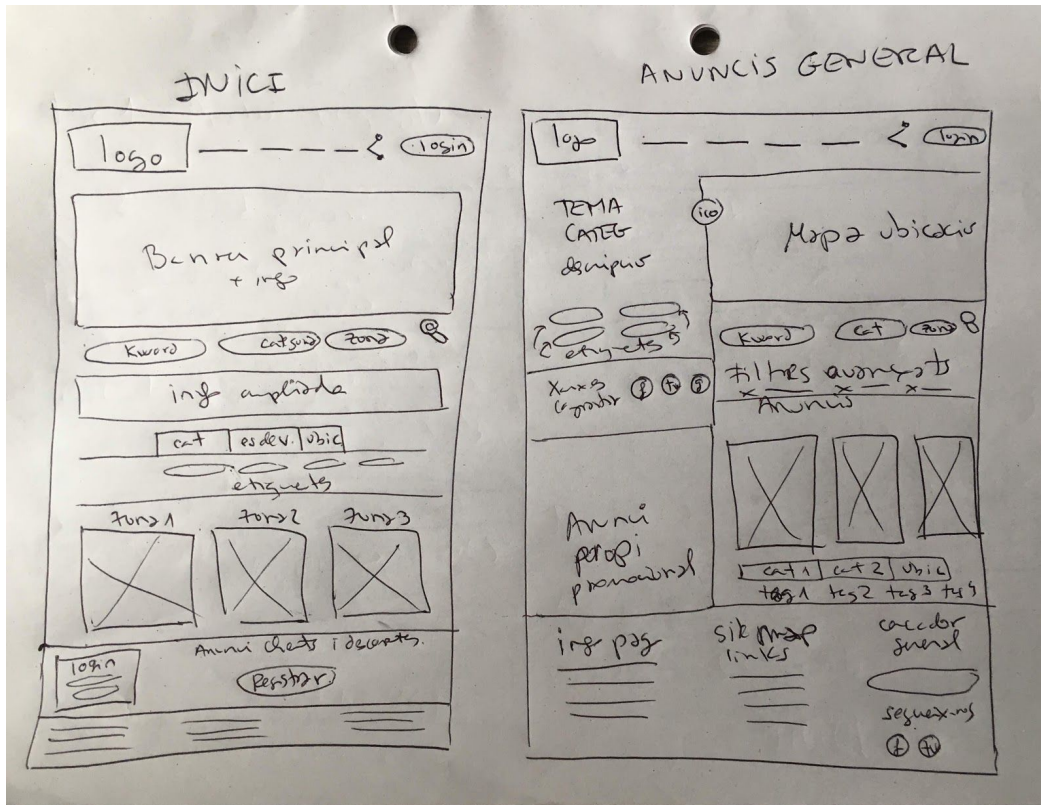 INICI
logo
login
Banner principal
+ info
Kword
categoria
zona
info ampliada
cat esdev. ubic
etiquets
zona 1 zona 2 zona 3
login
Anunci
Registrar
ANUNCIS GENERAL
logo
login
TEMA
CATEG
ico
Mapa ubicacio
etiquets
Kword
cat
zona
Xarxes
f tw g
Filtres avançats
Anuncis
Anunci
propi
promocional
cat 1 cat 2 ubic
tag 1 tag 2 tag 3 tag 4
info pag
sitemap
links
general
segueix-nos
f tw